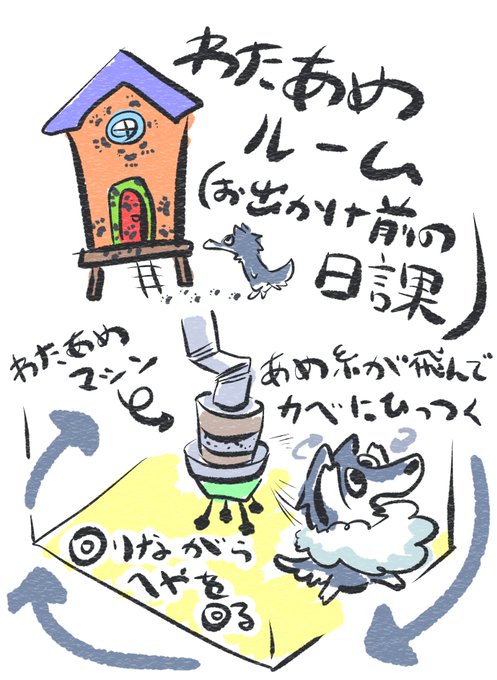 わたあめ
ルーム
(お出かけ前の
日課)
わたあめ
マシン
あめ糸が飛んで
カベにひっつく
回りながら
へやを
回る